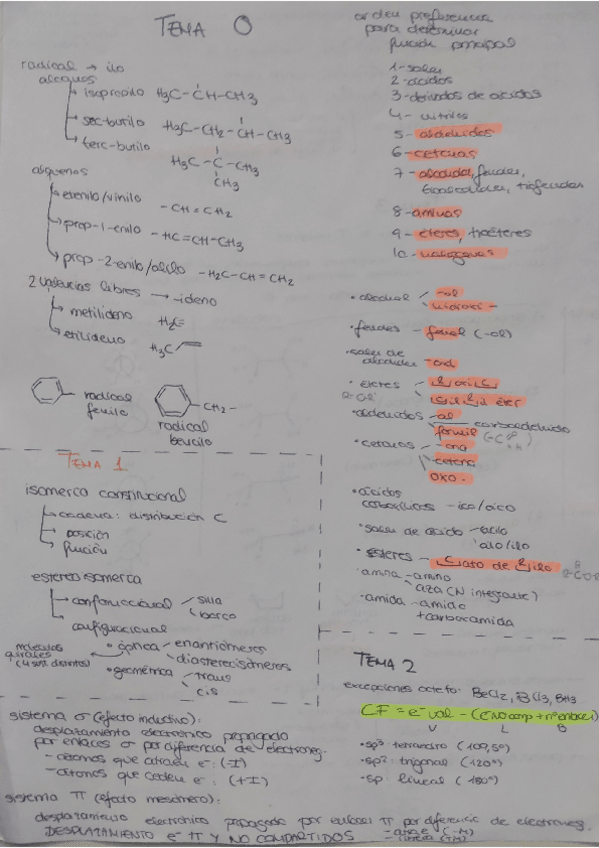 TEMA 0
radical → ilo
alcanos
isopropilo H3C-CH-CH3
sec-butilo H3C-CH2-CH-CH3
terc-butilo H3C-C-CH3
CH3
alquenos
etenilo/vinilo -CH=CH2
prop-1-enilo -HC=CH-CH3
prop-2-enilo/alilo -H2C-CH=CH2
2 valencias libres → -ideno
metilideno H2C=
etilideno H3C
radical
fenilo
CH2-
radical
bencilo
orden preferencia
para determinar
función principal
1-sales
2-ácidos
3-derivados de ácidos
4- nitrilos
5- aldehidos
6- cetonas
7- alcoholes, fenoles,
tioalcoholes, tiofenoles
8- aminas
9- éteres, tioéteres
10- halógenos
· alcohol -ol
hidroxi-
· fenoles - fenol (-ol)
· sales de
alcoholes
· éteres
éter
· aldehidos -al
carbaldehido
formil
· cetonas -ona
cetona
oxo-
· ácidos
carboxílicos -ico/oico
· sales de ácido -ato
· ésteres - ato de ilo
· amina -amino
aza (N integrante)
· amida -amido
+carboxamida
TEMA 1
isomería constitucional
cadena: distribución C
posición
función
estereoisomería
conformacional silla
barco
configuracional
moléculas
quirales
(4 sust distintos)
· óptica enantiómeros
diastereoisómeros
· geométrica trans
cis
sistema σ (efecto inductivo):
desplazamiento electrónico propagado
por enlaces σ por diferencia de electroneg.
- átomos que atraen e-: (-I)
- átomos que ceden e-: (+I)
sistema π (efecto mesómero):
desplazamiento electrónico propagado por enlaces π por diferencia de electroneg.
DESPLAZAMIENTO e- π Y NO COMPARTIDOS
- atrae (-M)
(+M)
TEMA 2
excepciones octeto: BeCl2, BCl3, BH3
CF = e- val - (e- no comp + nº enlaces)
V L B
· sp3: tetraedro (109,5º)
· sp2: trigonal (120º)
· sp: lineal (180º)